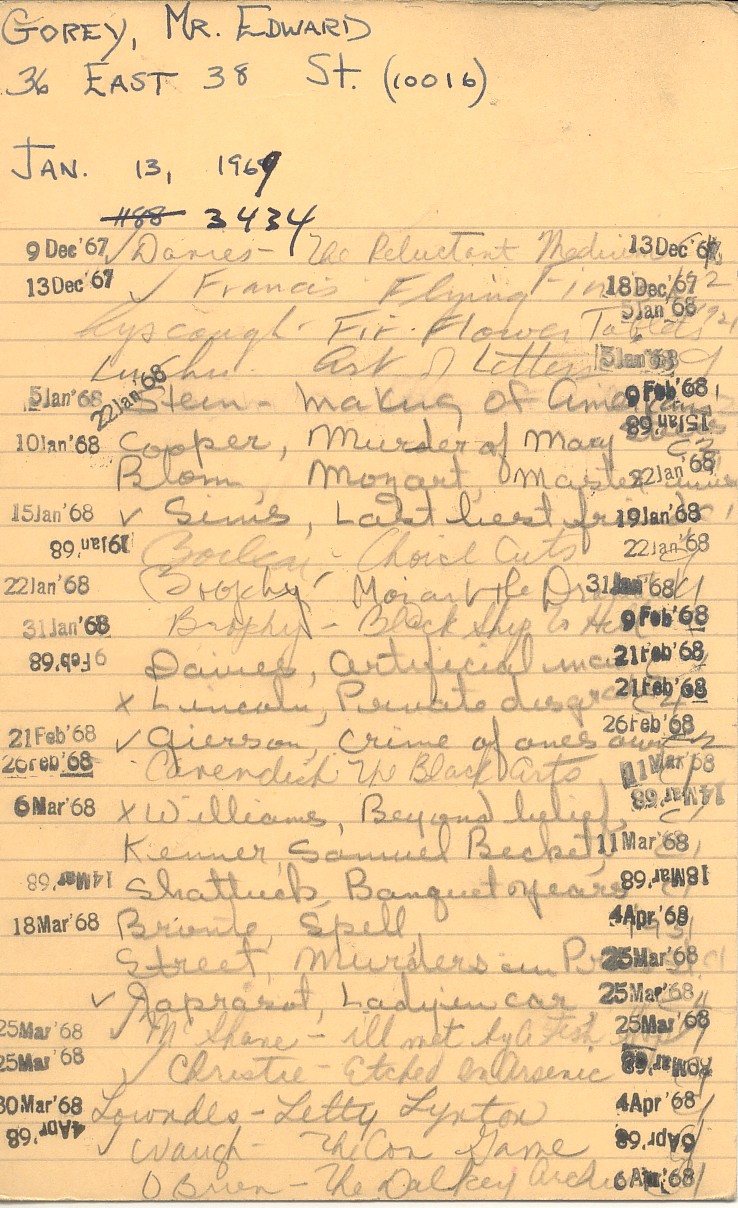 GOREY, MR. EDWARD
36 EAST 38 ST. (10016)
JAN. 13, 1969
#88 3434
9 Dec '67 ✓ Davies - The Reluctant Medium 13 Dec '67
13 Dec '67 ✓ Francis Flying Fin 18 Dec '67
5 Jan '68
Ayscough - Fir-Flower Tablets
Lu Chi. Art of Letters 5 Jan '68
5 Jan '68 22 Jan '68 Stein - Making of Americans 9 Feb '68
15 Jan '68
10 Jan '68 Copper, Murder of Mary
Blom, Mozart, Master 22 Jan '68
15 Jan '68 ✓ Sims, Last best friend 19 Jan '68
19 Jan '68 Boileau - Choice Cuts 22 Jan '68
22 Jan '68 Brophy Mozart the Dra 31 Jan '68
31 Jan '68 Brophy - Black Ship to Hell 9 Feb '68
9 Feb '68 Davies, Artificial man 21 Feb '68
x Lincoln, Private disgrace 21 Feb '68
21 Feb '68 ✓ Gierson, Crime of ones own 26 Feb '68
26 Feb '68 Cavendish The Black Arts 11 Mar '68
14 Mar '68
6 Mar '68 x Williams, Beyond belief
Kenner, Samuel Beckett 11 Mar '68
14 Mar '68 Shattuck, Banquet years 18 Mar '68
18 Mar '68 Bronte, Spell 4 Apr '68
Street, Murders in Pr 25 Mar '68
✓ Japrisot, Lady in car 25 Mar '68
25 Mar '68 ✓ McShane - Ill met by a Fish Shop 25 Mar '68
25 Mar '68 ✓ Christie - Etched in Arsenic Mar '68
30 Mar '68 Lowndes - Letty Lynton 4 Apr '68
4 Apr '68 Waugh - The Con Game 6 Apr '68
O'Brien - The Dalkey Archive 6 Apr '68